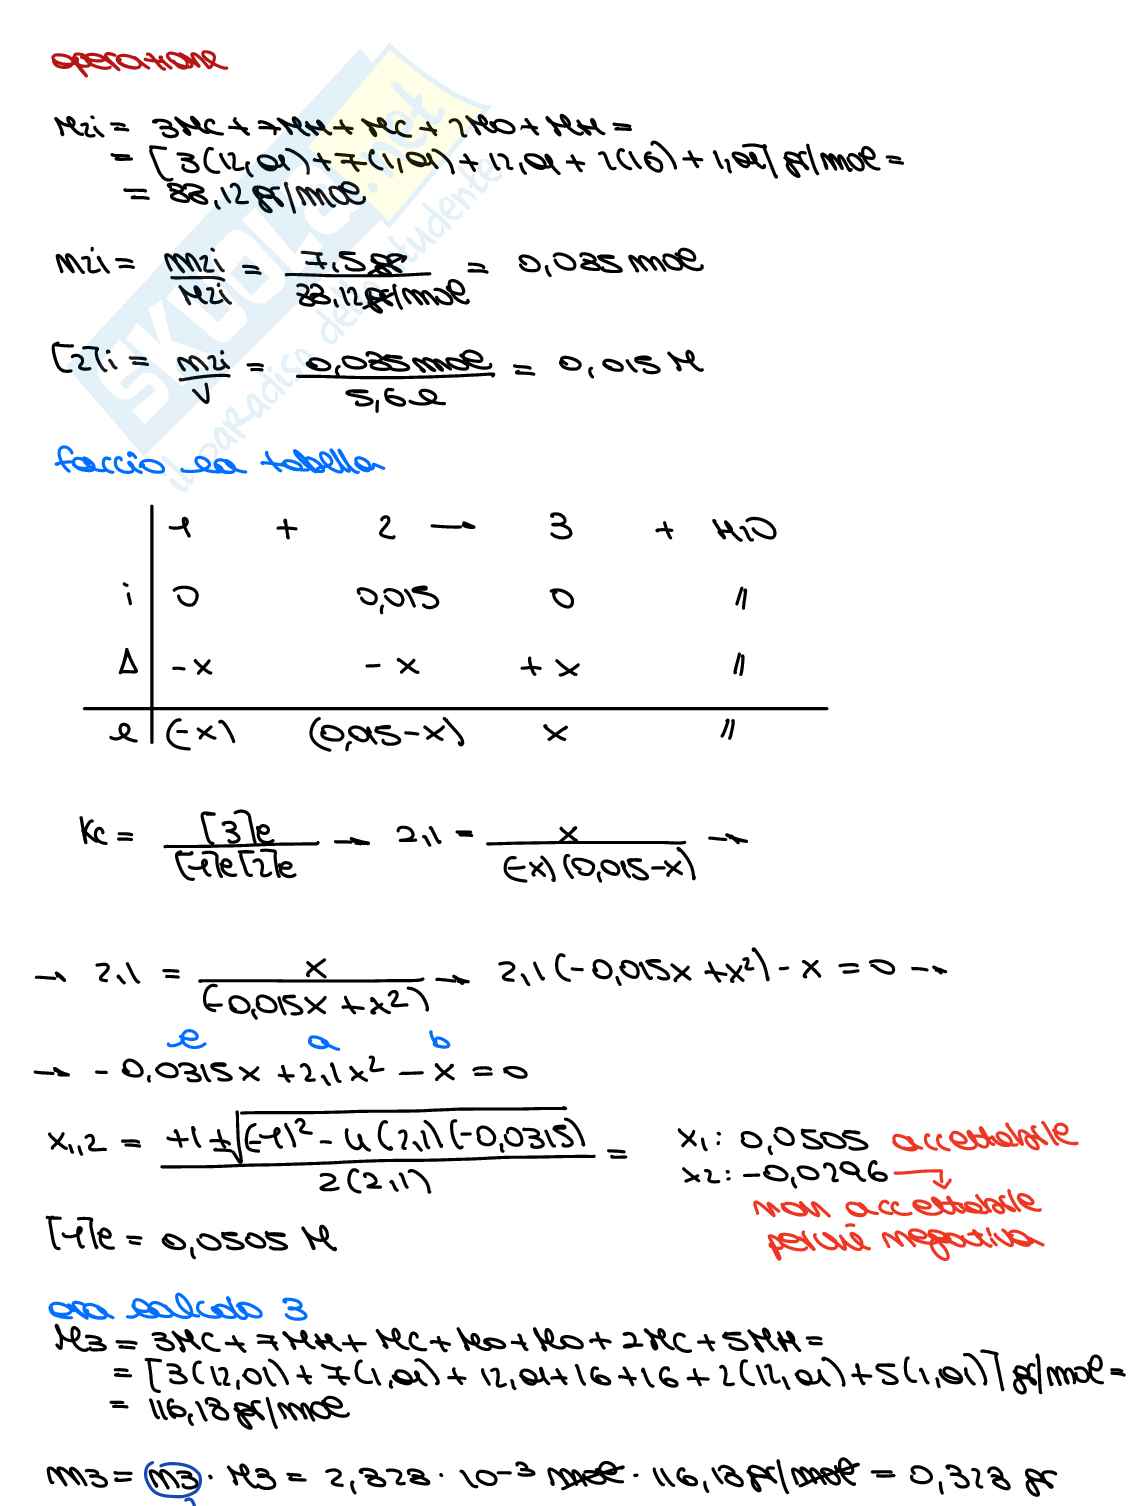 operazione
M2i = 3MC + 7MH + MC + 2MO + MH =
= [3(12,01) + 7(1,01) + 12,01 + 2(16) + 1,01] gr/mol =
= 88,12 gr/mol
n2i = m2i / M2i = 7,5 gr / 88,12 gr/mol = 0,085 mol
[2]i = n2i / V = 0,085 mol / 5,6 l = 0,015 M
faccio la tabella
1 + 2 → 3 + H2O
i 0 0,015 0 //
Δ -x -x +x //
e (-x) (0,015-x) x //
Kc = [3]e / [1]e[2]e → 2,1 = x / (-x)(0,015-x) →
→ 2,1 = x / (-0,015x + x²) → 2,1(-0,015x + x²) - x = 0 →
c a b
→ -0,0315x + 2,1x² - x = 0
x1,2 = +1 ± √(-1)² - 4(2,1)(-0,0315) / 2(2,1) =
x1: 0,0505 accettabile
x2: -0,0296 → non accettabile
perché negativa
[1]e = 0,0505 M
ora calcolo 3
M3 = 3MC + 7MH + MC + MO + MO + 2MC + 5MH =
= [3(12,01) + 7(1,01) + 12,01 + 16 + 16 + 2(12,01) + 5(1,01)] gr/mol =
= 116,18 gr/mol
m3 = n3 · M3 = 2,828 · 10⁻³ mol · 116,18 gr/mol = 0,328 gr
SKUOLA.net
il paradiso dello studente